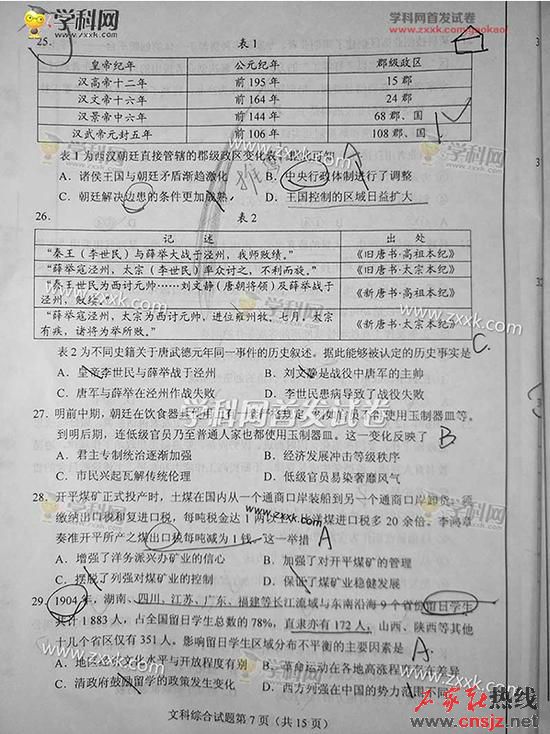 学科网
www.zxxk.com
学科网首发试卷
www.zxxk.com/gaokao
25.
表 1
皇帝纪年 公元纪年 郡级政区
汉高帝十二年 前 195 年 15 郡
汉文帝十六年 前 164 年 24 郡
汉景帝中六年 前 144 年 68 郡、国
汉武帝元封五年 前 106 年 108 郡、国
表 1 为西汉朝廷直接管辖的郡级政区变化表。
A
A. 诸侯王国与朝廷矛盾渐趋激化 B. 中央行政体制进行了调整
C. 朝廷解决边患的条件更加成熟 D. 王国控制的区域日益扩大
26.
表 2
记 述 出 处
“秦王（李世民）与薛举大战于泾州，我师败绩。” 《旧唐书·高祖本纪》
“薛举寇泾州，太宗（李世民）率众讨之，不利而旋。” 《旧唐书·太宗本纪》
“秦王世民为西讨元帅……刘文静（唐朝将领）及薛举战于 《新唐书·高祖本纪》
泾州，败绩。”
“薛举寇泾州，太宗为西讨元帅，进位雍州牧。七月，太宗 《新唐书·太宗本纪》
有疾，诸将为举所败。”
C.
表 2 为不同史籍关于唐武德元年同一事件的历史叙述。据此能够被认定的历史事实是
A. 皇帝李世民与薛举战于泾州 B. 刘文静是战役中唐军的主帅
C. 唐军与薛举在泾州作战失败 D. 李世民患病导致了战役失败
27. 明前中期，朝廷在饮食器具 使用玉制器皿等。
到明后期，连低级官员乃至普通人家也都使用玉制器皿。这一变化反映了 B
A. 君主专制统治逐渐加强 B. 经济发展冲击等级秩序
C. 市民兴起瓦解传统伦理 D. 低级官员易染奢靡风气
28. 开平煤矿正式投产时，土煤在国内从一个通商口岸装船到另一个通商口岸卸货，
缴纳出口税和复进口税，每吨税金达 1 两 洋煤进口税多 20 余倍。李鸿章
奏准开平所产之煤出口税每吨减为 1 钱。这一举措 A
A. 增强了洋务派兴办矿业的信心 B. 加强了对开平煤矿的管理
C. 摆脱了列强对煤矿业的控制 D. 保证了煤矿业稳健发展
29. 1904 年，湖南、四川、江苏、广东、福建等长江流域与东南沿海 9 个省份留日学生
共计 1 883 人，占全国留日学生总数的 78%，直隶亦有 172 人，山西、陕西等其他
十几个省区仅有 351 人。影响留日学生区域分布不平衡的主要因素是 A.
A. 地区经济文化水平与开放程度有别 B. 革命运动在各地高涨程度存在差异
C. 清政府鼓励留学的政策发生变化 D. 西方列强在中国的势力范围不同
文科综合试题第 7 页（共 15 页）
热线
www.cnsjz.net